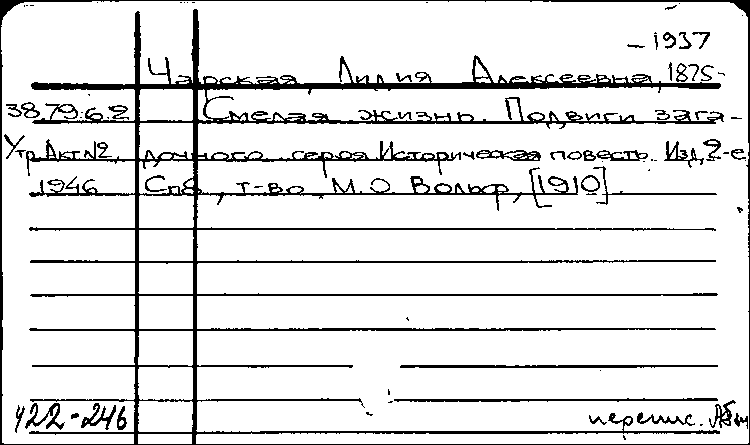 – 1937
Чарская, Лидия Алексеевна, 1875-
38.79.6.2 Смелая жизнь. Подвиги зага-
Утр. Акт №2, дочного героя. Историческая повесть. Изд. 2-е
1946 Спб, т-во М.О. Вольф, [1910].
422-246 перепис.